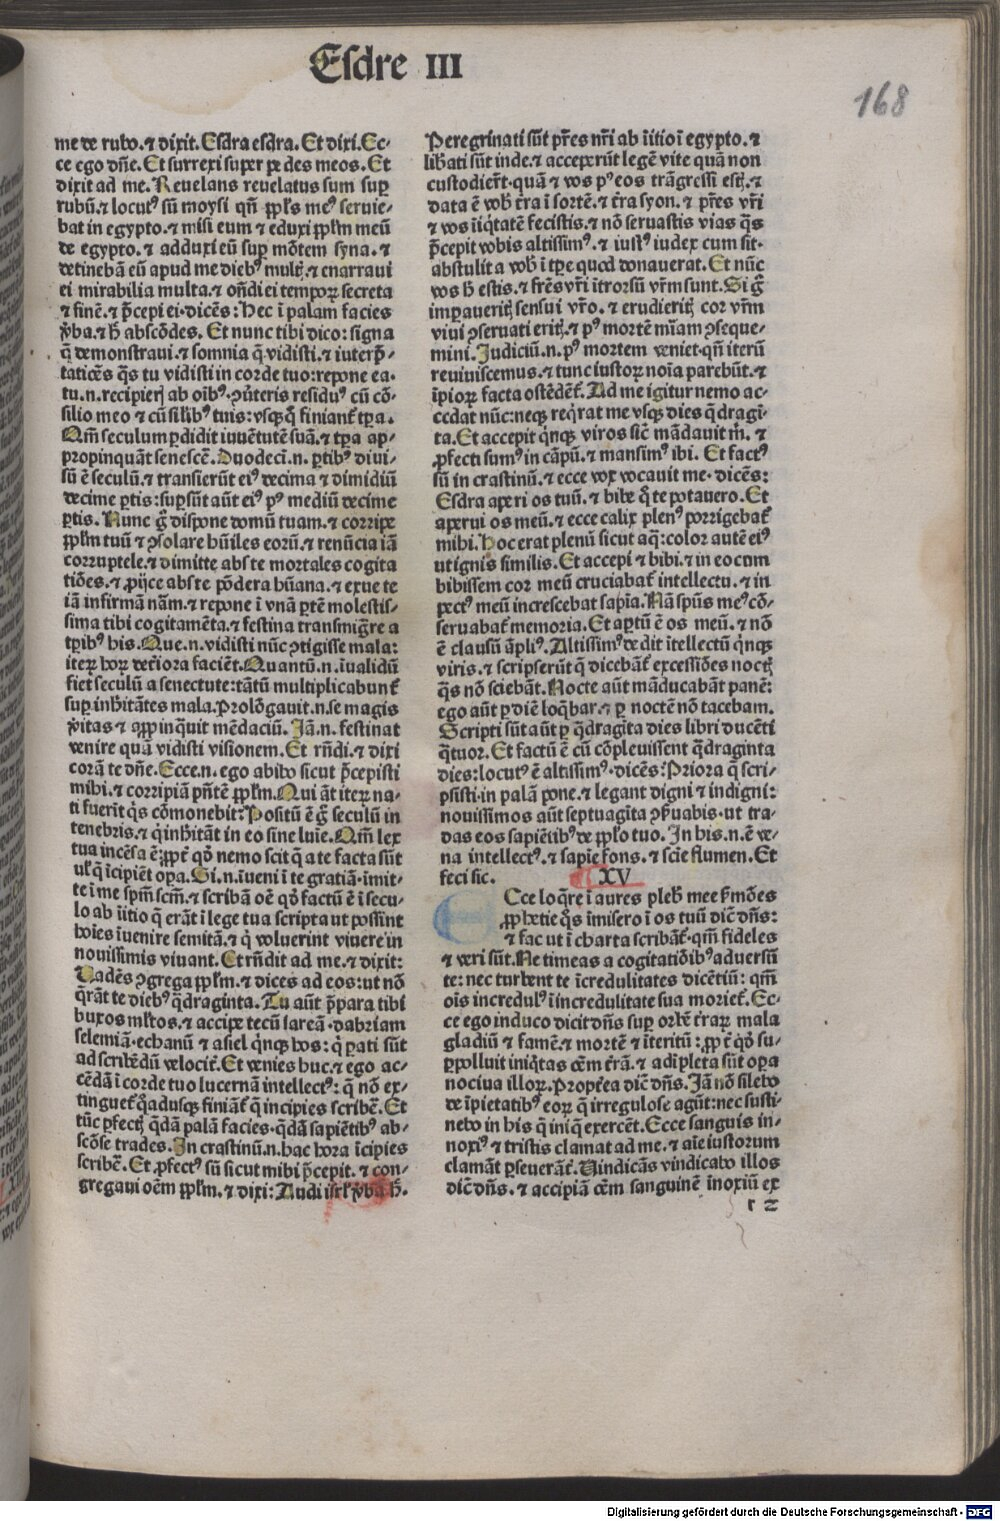 Esdre III
168
me de rubo. ⁊ dixit. Esdra esdra. Et dixi. Ec-
ce ego dñe. Et surrexi super pedes meos. Et
dixit ad me. Reuelans reuelatus sum suꝑ
rubũ. ⁊ locutꝰ sũ moysi qñ ꝓpl's meꝰ seruie-
bat in egypto. ⁊ misi eum ⁊ eduxi ꝓpl'm meũ
de egypto. ⁊ adduxi eũ suꝑ mõtem syna. ⁊
detinebã eũ apud me diebꝰ multꝭ. ⁊ enarraui
ei mirabilia multa. ⁊ oñdi ei tempoꝝ secreta
⁊ finẽ. ⁊ p̃cepi ei. dicẽs: Hec ĩ palam facies
v̾ba. ⁊ h̃ abscõdes. Et nunc tibi dico: signa
q̃ demonstraui. ⁊ somnia q̃ vidisti. ⁊ iuterp̃-
tatiões q̃s tu vidisti in corde tuo: repone ea.
tu. n. recipierꝭ ab oĩbꝰ. ꝯũteris residuꝰ cũ cõ-
silio meo ⁊ cũ silibꝰ tuis: vsq̃ꝫ q̃ finiant̃ tp̃a.
Qm̃ seculum ꝑdidit iuuẽtutẽ suã. ⁊ tp̃a ap-
propinquãt senescẽ. Duodecĩ. n. ꝑtibꝰ diui-
sũ ẽ seculũ. ⁊ transierũt eiꝰ decima ⁊ dimidiũ
decime ꝑtis: suꝑsũt aũt eiꝰ pꝰ mediũ decime
ꝑtis. Nunc g̃ dispone domũ tuam. ⁊ corripe
ꝓpl'm tuũ ⁊ ꝯsolare hũiles eorũ. ⁊ renũcia iã
corruptele. ⁊ dimitte abs te mortales cogita
tiões. ⁊ ꝓijce abs te põdera hũana. ⁊ exue te
iã infirmã nãm. ⁊ repone ĩ vnã ꝑtẽ molestis-
sima tibi cogitamẽta. ⁊ festina transmig̃re a
tp̃ibꝰ his. Que. n. vidisti nũc ꝯtigisse mala:
iteꝝ hoꝝ deteriora faciẽt. Quantũ. n. ĩualidũ
fiet seculũ a senectute: tãtũ multiplicabunt̃
suꝑ inh̃itãtes mala. Prolõgauit. n. se magis
v̾itas ⁊ aꝓpinq̃uit mẽdaciũ. Jã. n. festinat
venire quã vidisti visionem. Et rñdi. ⁊ dixi
corã te dñe. Ecce. n. ego abibo sicut p̃cepisti
mihi. ⁊ corripiã pñtẽ ꝓpl'm. Qui aũt iteꝝ na-
ti fuerĩt q̃s cõmonebit: Positũ ẽ g̃ seculũ in
tenebris. ⁊ q̃ inh̃itãt in eo sine luĩe. Qm̃ lex
tua incẽsa ẽ: ꝓpt̃ qđ nemo scit q̃ a te facta sũt
ul' q̃ ĩcipiẽt oꝑa. Si. n. ĩueni ĩ te gratiã. ĩmit-
te ĩ me spm̃ scm̃. ⁊ scribã oẽ qđ factũ ẽ ĩ secu-
lo ab ĩitio q̃ erãt ĩ lege tua scripta ut possĩnt
hoĩes ĩuenire semitã. ⁊ q̃ voluerint viuere in
nouissimis viuant. Et rñdit ad me. ⁊ dixit:
Vadẽs ꝯgrega ꝓpl'm. ⁊ dices ad eos: ut nõ
q̃rãt te diebꝰ q̃draginta. Tu aũt p̃para tibi
buxos ml'tos. ⁊ accipe tecũ sareã. dabriam
selemiã. echanũ ⁊ asiel q̃nqꝫ hos: q̃ ꝑati sũt
ad scribẽdũ velocit̃. Et venies huc. ⁊ ego ac-
cẽdã ĩ corde tuo lucernã intellectꝰ: q̃ nõ ex-
tinguet̃ q̃adusqꝫ finiãt̃ q̃ incipies scribẽ. Et
tũc ꝑfectꝭ q̃dã palã facies. q̃dã sapiẽtibꝰ ab-
scõse trades. In crastinũ. n. hac hora ĩcipies
scribẽ. Et ꝓfectꝰ sũ sicut mihi p̃cepit. ⁊ con-
gregaui oẽm ꝓpl'm. ⁊ dixi: Audi isrl' v̾ba h̃.
Peregrinati sũt pr̃es nr̃i ab ĩitio ĩ egypto. ⁊
lib̃ati sũt inde. ⁊ acceperũt legẽ vite quã non
custodier̃t. quã ⁊ vos pꝰ eos trãgressi estꝭ. ⁊
data ẽ vob̃ t̃ra ĩ sortẽ. ⁊ t̃ra syon. ⁊ pr̃es vr̃i
⁊ vos ĩiq̃tatẽ fecistis. ⁊ nõ seruastis vias q̃s
p̃cepit vobis altissimꝰ. ⁊ iustꝰ iudex cum sit.
abstulit a vob̃ ĩ tp̃e quod donauerat. Et nũc
vos h̃ estis. ⁊ fr̃es vr̃i ĩtrorsũ vr̃m sunt. Si g̃
imꝑaueritꝭ sensui vr̃o. ⁊ erudieritꝭ cor vr̃m
viui ꝯseruati eritꝭ. ⁊ pꝰ mortẽ mĩam ꝯseque-
mini. Judiciũ. n. pꝰ mortem veniet. qñ iterũ
reuiuiscemus. ⁊ tunc iustoꝝ noĩa parebũt. ⁊
ĩpioꝝ facta ostẽdẽt̃. Ad me igitur nemo ac-
cedat nũc: neqꝫ req̃rat me vsqꝫ dies q̃dragĩ-
ta. Et accepit q̃nqꝫ viros sic̃ mãdauit m̃. ⁊
ꝓfecti sumꝰ in cãpũ. ⁊ mansimꝰ ibi. Et factꝰ
sũ in crastinũ. ⁊ ecce vox vocauit me. dicẽs:
Esdra aperi os tuũ. ⁊ bibe q̃ te potauero. Et
aperui os meũ. ⁊ ecce calix plenꝰ porrigebat̃
mihi. Hoc erat plenũ sicut aq̃: color autẽ eiꝰ
ut ignis similis. Et accepi ⁊ bibi. ⁊ in eo cum
bibissem cor meũ cruciabat̃ intellectu. ⁊ in
pectꝰ meũ increscebat sapĩa. Nã spũs meꝰ cõ-
seruabat̃ memoria. Et aꝑtũ ẽ os meũ. ⁊ nõ
ẽ clausũ ãpliꝰ. Altissimꝰ dedit ĩtellectũ q̃nqꝫ
viris. ⁊ scripserũt q̃ dicebãt̃ excessiões noctꝭ
q̃s nõ sciebãt. Nocte aũt mãducabãt panẽ:
ego aũt ꝑ diẽ loq̃bar. ⁊ ꝑ noctẽ nõ tacebam.
Scripti sũt aũt ꝑ q̃dragita dies libri ducẽti
q̃tuor. Et factũ ẽ cũ cõpleuissent q̃draginta
dies: locutꝰ ẽ altissimꝰ. dicẽs: Priora q̃ scri-
psisti. in palã pone. ⁊ legant digni ⁊ indigni:
nouissimos aũt septuagĩta ꝯs̃uabis. ut tra-
das eos sapiẽtibꝰ de ꝓpl'o tuo. In his. n. ẽ ve-
na intellectꝰ. ⁊ sapĩe fons. ⁊ scĩe flumen. Et
feci sic. XV
Ecce loq̃re ĩ aures pleb̃ mee s̃mões
ꝓphetie q̃s ĩmisero ĩ os tuũ dic̃ dñs:
⁊ fac ut ĩ charta scribãt̃. qm̃ fideles
⁊ veri sũt. Ne timeas a cogitatiõibꝰ aduersũ
te: nec turbent te ĩcredulitates dicẽtiũ: qm̃
oĩs incredulꝰ ĩ incredulitate sua moriet̃. Ec-
ce ego induco dicit dñs suꝑ orbẽ t̃raꝝ mala
gladiũ ⁊ famẽ. ⁊ mortẽ ⁊ ĩteritũ: ꝓpt̃ qđ su-
ꝑpolluit iniq̃tas oẽm t̃rã. ⁊ adĩpleta sũt oꝑa
nociua illoꝝ. Propt̃ea dic̃ dñs. Jã nõ silebo
de ĩpietatibꝰ eoꝝ q̃ irregulose agũt: nec susti-
nebo in his q̃ iniq̃ exercẽt. Ecce sanguis in-
noxiꝰ ⁊ tristis clamat ad me. ⁊ aĩe iustorum
clamãt ꝑseuerãt̃. Vindicãs vindicabo illos
dic̃ dñs. ⁊ accipiã oẽm sanguinẽ inoxiũ ex
r 2
Digitalisierung gefördert durch die Deutsche Forschungsgemeinschaft - DFG